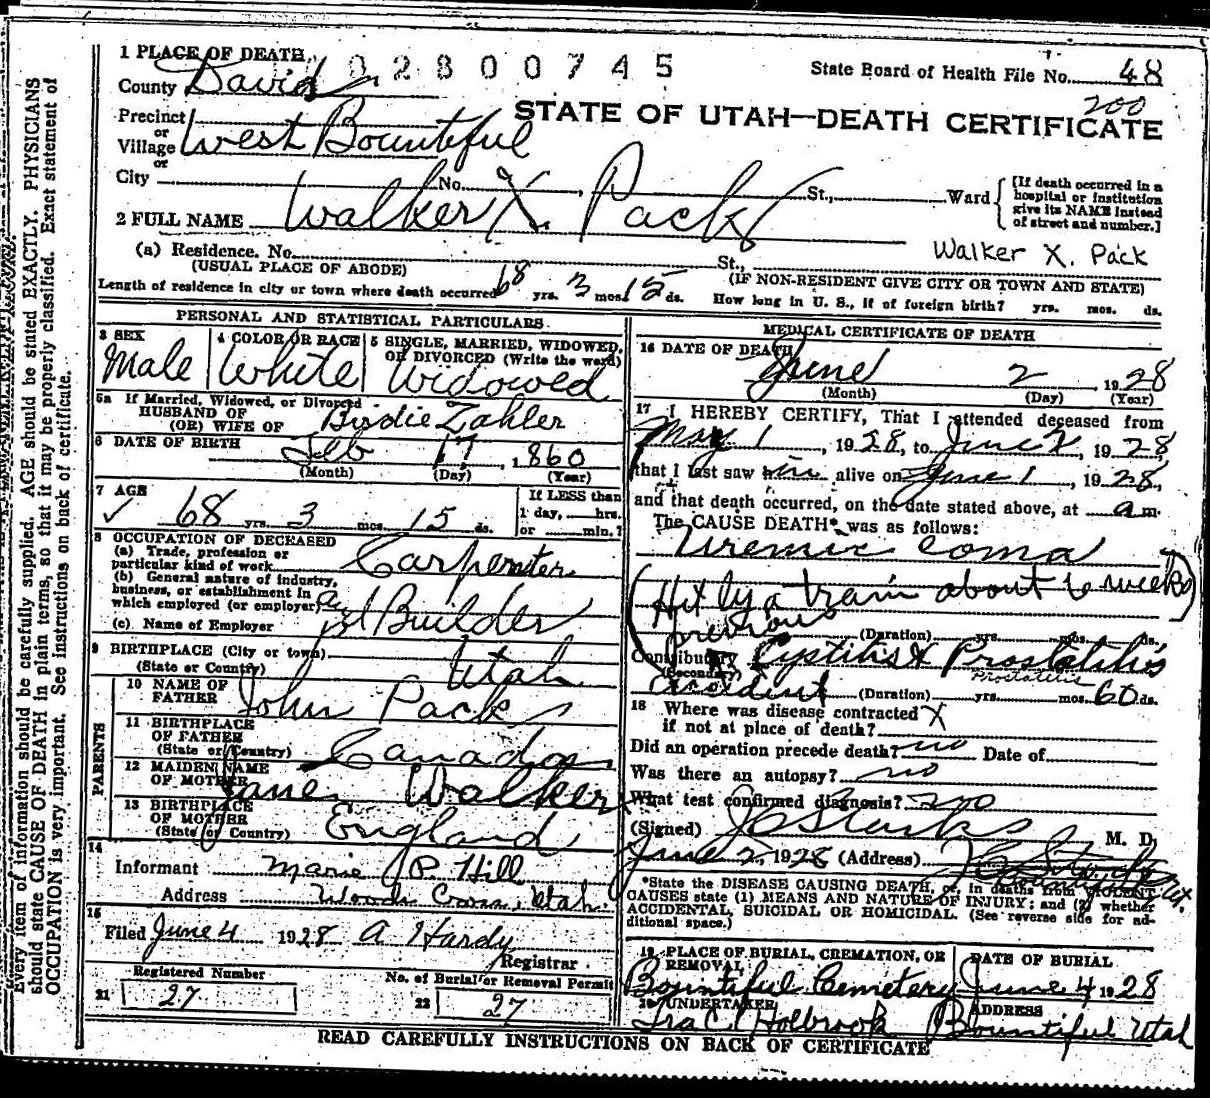 1 PLACE OF DEATH
02800745
State Board of Health File No. 48
County Davis
200
STATE OF UTAH—DEATH CERTIFICATE
Precinct
or
Village West Bountiful
or
City No. St., Ward
[If death occurred in a hospital or institution give its NAME instead of street and number.]
2 FULL NAME Walker X. Pack
Walker X. Pack
(a) Residence. No. St.,
(USUAL PLACE OF ABODE)
(IF NON-RESIDENT GIVE CITY OR TOWN AND STATE)
Length of residence in city or town where death occurred 68 yrs. 3 mos. 15 ds. How long in U. S., if of foreign birth? yrs. mos. ds.
PERSONAL AND STATISTICAL PARTICULARS
3 SEX
Male
4 COLOR OR RACE
White
5 SINGLE, MARRIED, WIDOWED, OR DIVORCED (Write the word)
Widowed
5a If Married, Widowed, or Divorced
HUSBAND OF
(OR) WIFE OF Birdie Zahler
6 DATE OF BIRTH
Feb 17, 1860
(Month) (Day) (Year)
7 AGE
68 yrs. 3 mos. 15 ds.
If LESS than
1 day, hrs.
or min.?
8 OCCUPATION OF DECEASED
(a) Trade, profession or
particular kind of work Carpenter
(b) General nature of industry,
business, or establishment in
which employed (or employer)
Builder
(c) Name of Employer
9 BIRTHPLACE (City or town)
(State or Country) Utah
PARENTS
10 NAME OF
FATHER John Pack
11 BIRTHPLACE
OF FATHER
(State or Country) Canada
12 MAIDEN NAME
OF MOTHER Jane Walker
13 BIRTHPLACE
OF MOTHER
(State or Country) England
14
Informant Marie P. Hill
Address Woods Cross, Utah
15
Filed June 4 1928 A Hardy
Registrar
Registered Number
21 27
No. of Burial or Removal Permit
22 27
MEDICAL CERTIFICATE OF DEATH
16 DATE OF DEATH
June 2, 1928
(Month) (Day) (Year)
17 I HEREBY CERTIFY, That I attended deceased from
May 1, 1928, to June 2, 1928,
that I last saw him alive on June 1, 1928,
and that death occurred, on the date stated above, at a m.
The CAUSE DEATH* was as follows:
Uremic coma
(Hit by a train about 6 weeks
previous)
(Duration) yrs. mos. ds.
Contributory Cystitis & Prostatitis
(Secondary) Prostatitis
accident (Duration) yrs. mos. 60 ds.
18 Where was disease contracted
if not at place of death? X
Did an operation precede death? no Date of
Was there an autopsy? no
What test confirmed diagnosis?
(Signed) M. D.
June 2, 1928 (Address)
*State the DISEASE CAUSING DEATH, or, in deaths from VIOLENT
CAUSES state (1) MEANS AND NATURE OF INJURY; and (2) whether
ACCIDENTAL, SUICIDAL OR HOMICIDAL. (See reverse side for ad-
ditional space.)
19 PLACE OF BURIAL, CREMATION, OR REMOVAL
Bountiful Cemetery
DATE OF BURIAL
June 4 1928
20 UNDERTAKER
Ira C Holbrook
ADDRESS
Bountiful Utah
READ CAREFULLY INSTRUCTIONS ON BACK OF CERTIFICATE
Every item of information should be carefully supplied. AGE should be stated EXACTLY. PHYSICIANS
should state CAUSE OF DEATH in plain terms, so that it may be properly classified. Exact statement of
OCCUPATION is very important. See instructions on back of certificate.